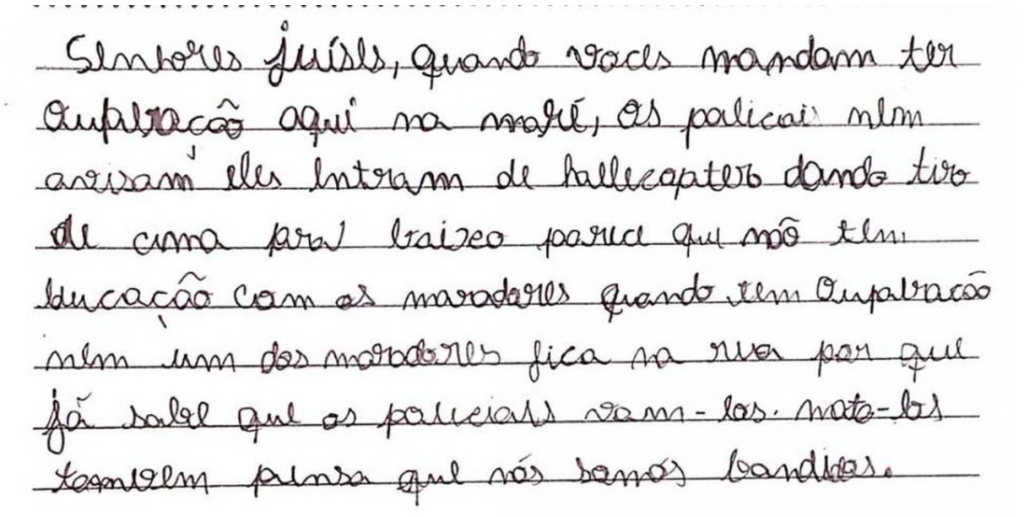 Senhores juíses, quando voces mandam ter
Oupalracão aqui na maré, os policai nem
avisam eles entram de hallecopter dando tiro
de cima para baixo parece que não tem
educação com os moradores quando tem Oupalracão
nem um dos moradores fica na rua por que
já sabe que os policiais vam-los. mata-los
tambem pensa que nós somos bandidos.